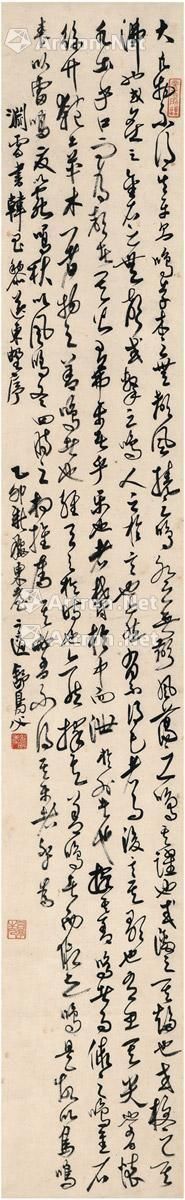 大凡物不得其平則鳴草木之無聲風撓之鳴水之無聲風蕩之鳴其躍也或激之其趨也或梗之其
沸也或炙之金石之無聲或擊之鳴人之於言也亦然有不得已者而後言其歌也有思其哭也有懷
凡出乎口而為聲者其皆有弗平者乎樂也者鬱於中而泄於外者也擇其善鳴者而假之鳴金石
絲竹匏土革木八者物之善鳴者也維天之於時也亦然擇其善鳴者而假之鳴是故以鳥鳴
春以雷鳴夏以蟲鳴秋以風鳴冬四時之相推奪其必有不得其平者乎
書韓昌黎送東野序 乙卯